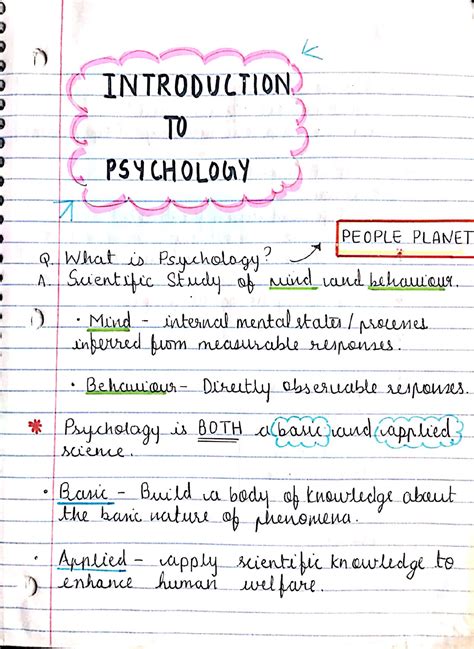 INTRODUCTION
TO
PSYCHOLOGY
PEOPLE PLANET
Q. What is Psychology?
A. Scientific Study of mind and behaviour.
• Mind - internal mental states / processes
inferred from measurable responses.
• Behaviour - Directly observable responses.
* Psychology is BOTH a basic and applied
science.
• Basic - Build a body of knowledge about
the basic nature of phenomena.
• Applied - apply scientific knowledge to
enhance human welfare.